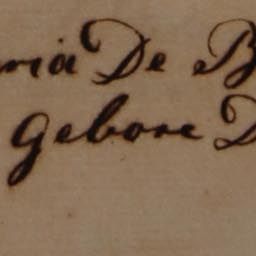 ria De B
gebore D